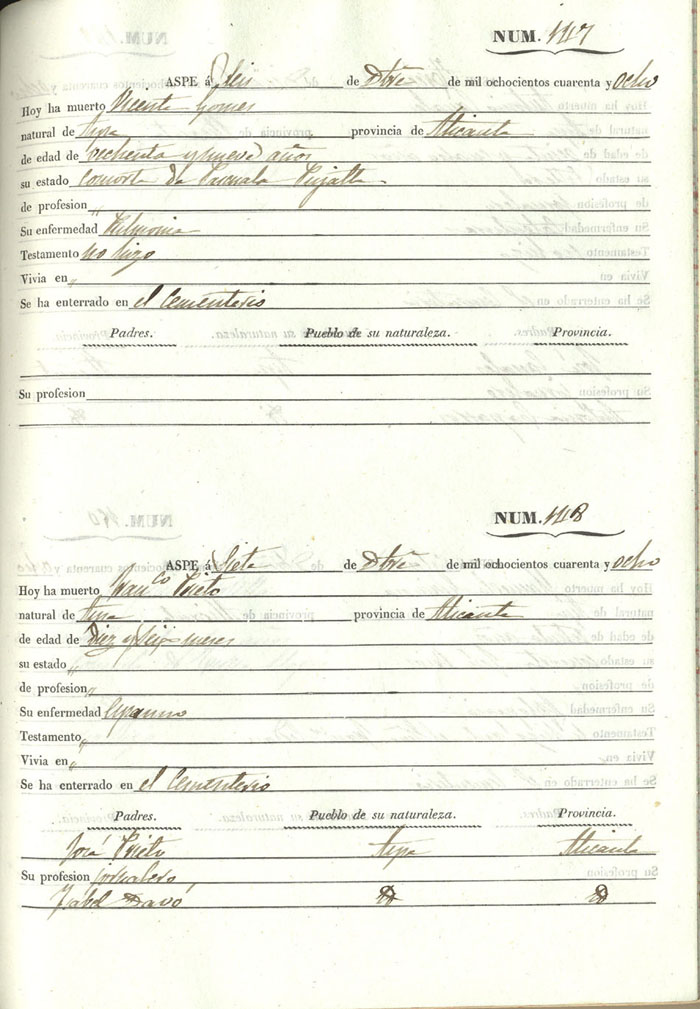 NUM. 117
ASPE á Seis de Dbre de mil ochocientos cuarenta y ocho
Hoy ha muerto Vicente Gomes
natural de Aspe provincia de Alicante
de edad de ochenta y nueve años
su estado consorte de Pascuala
de profesion „
Su enfermedad Pulmonia
Testamento no hizo
Vivia en „
Se ha enterrado en el Cementerio
Padres. Pueblo de su naturaleza. Provincia.
Su profesion
NUM. 118
ASPE á Siete de Dbre de mil ochocientos cuarenta y ocho
Hoy ha muerto Franco Prieto
natural de Aspe provincia de Alicante
de edad de Diez y seis meses
su estado „
de profesion „
Su enfermedad
Testamento „
Vivia en „
Se ha enterrado en el Cementerio
Padres. Pueblo de su naturaleza. Provincia.
José Prieto Aspe Alicante
Su profesion jornalero
Ysabel Davó D D